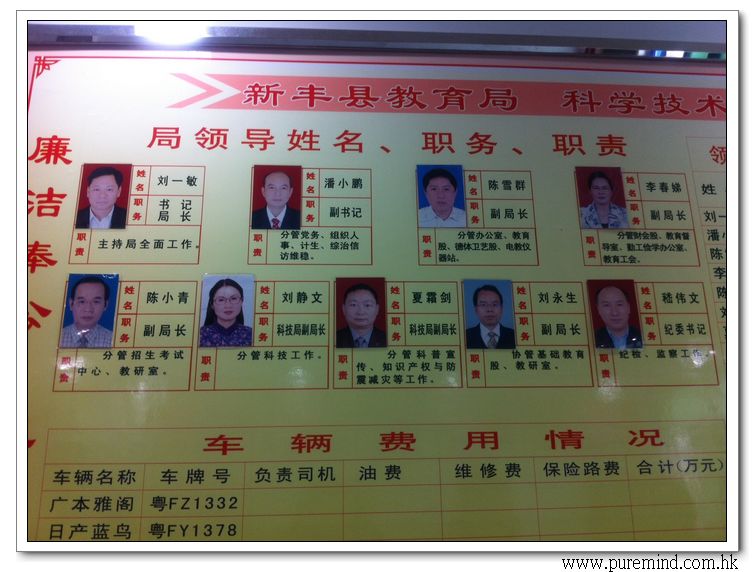 新丰县教育局 科学技术
局领导姓名、职务、职责
廉洁奉公
姓名 刘一敏
职务 书记 局长
职责 主持局全面工作。
姓名 潘小鹏
职务 副书记
职责 分管党务、组织人
事、计生、综治信
访维稳。
姓名 陈雪群
职务 副局长
职责 分管办公室、教育
股、德体卫艺股、电教仪
器站。
姓名 李春娣
职务 副局长
职责 分管财会股、教育督
导室、勤工俭学办公室、
教育工会。
姓名 陈小青
职务 副局长
职责 分管招生考试
中心、教研室。
姓名 刘静文
职务 科技局副局长
职责 分管科技工作。
姓名 夏霜剑
职务 科技局副局长
职责 分管科普宣
传、知识产权与防
震减灾等工作。
姓名 刘永生
职务 副局长
职责 协管基础教育
股、教研室。
姓名 嵇伟文
职务 纪委书记
职责 纪检、监察工作。
领
姓
刘一
潘小
陈雪
李
陈
刘
车辆费用情况
车辆名称 车牌号 负责司机 油费 维修费 保险路费 合计(万元)
广本雅阁 粤FZ1332
日产蓝鸟 粤FY1378
www.puremind.com.hk